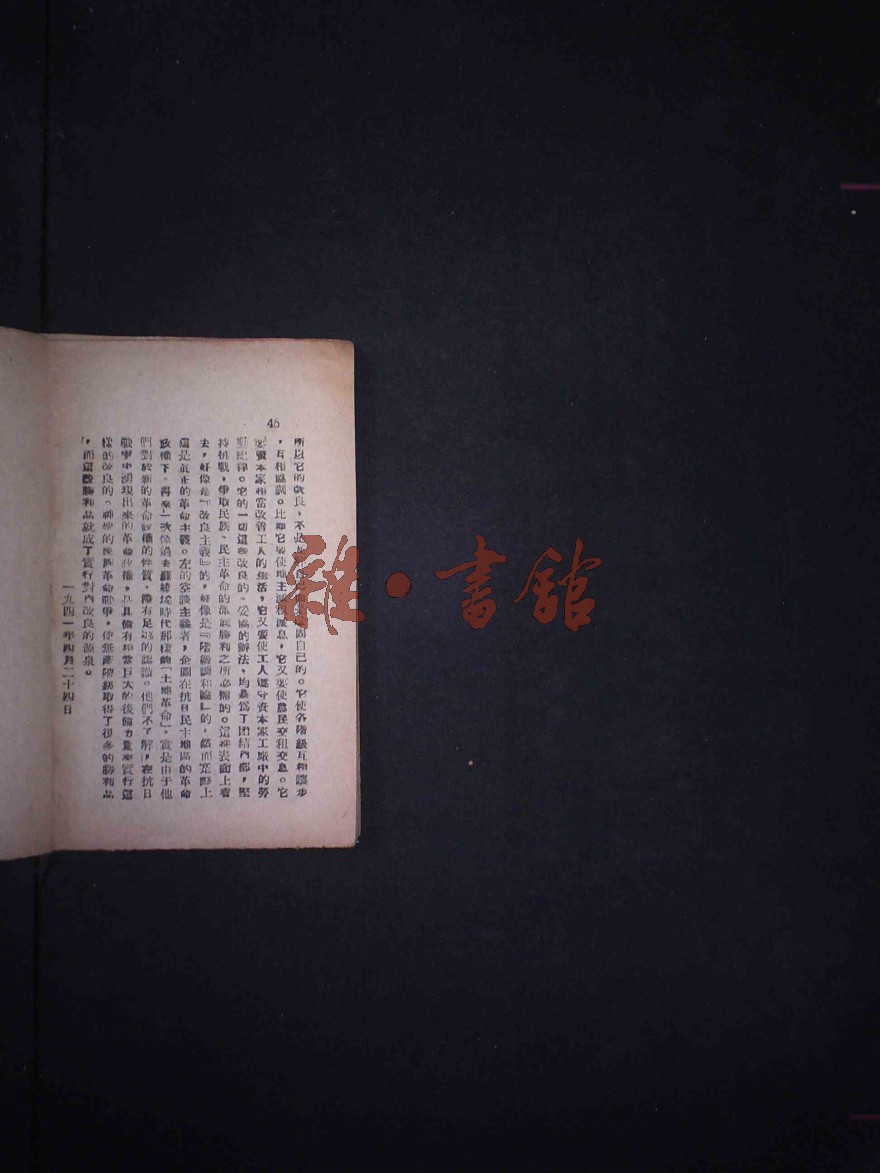 45
所以它的改良，不是
固自己的。它使各階級互相讓步
，互相協調。比如它要使地主減租減息，它又要使農民交租交息。它
要資本家相當改善工人的生活，它又要使工人遵守資本家工廠中的勞
動紀律。它的一切這些改良的、妥協的辦法，均是爲了團結內部，堅
持抗戰，爭取民族、民主革命的徹底勝利之所必需的。這在表面上看
去，好像是『改良主義』的，好像是『階級調和論』的，然而實際上
這是真正的革命主義。左的空談主義者，企圖在抗日民主地區的革命
政權下，再來一次像過去蘇維埃時代那樣的『土地革命』，實是由于他
們對於新的革命政權的性質，沒有足够的認識。他們不了解，在抗日
戰爭中湧現出來的革命政權，是具備有相當巨大的後備力量來實行這
樣的改良的。神聖的民族革命戰爭，使無產階級取得了很多的勝利品
，而這些勝利品就成了實行對內改良的源泉。
一九四一年四月二十四日
雜·書館